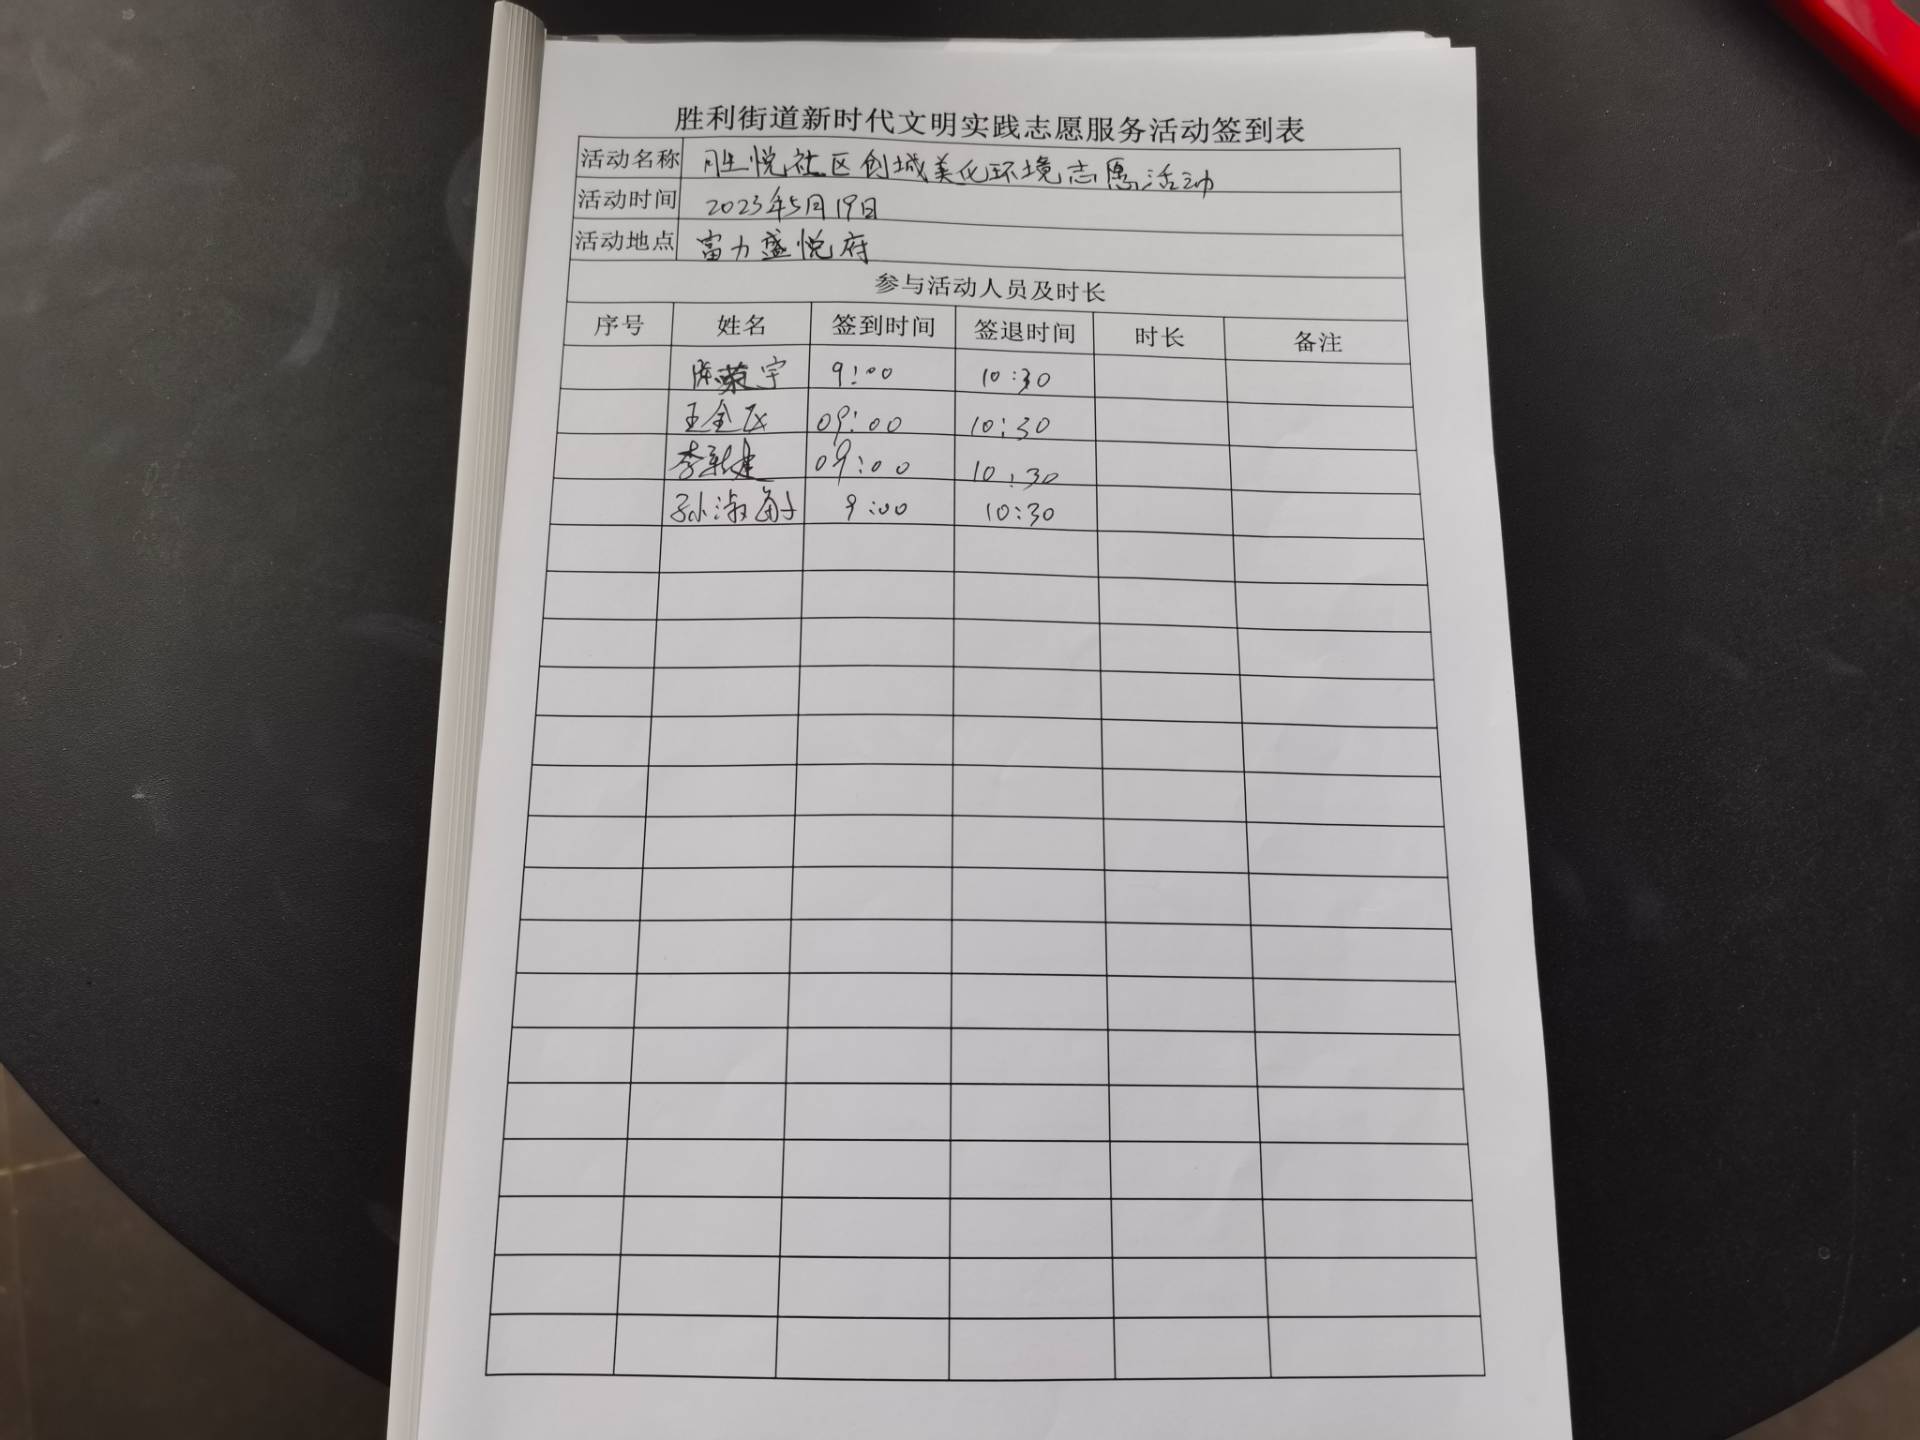 胜利街道新时代文明实践志愿服务活动签到表
活动名称 胜悦社区创城美化环境志愿活动
活动时间 2023年5月19日
活动地点 富力盛悦府
参与活动人员及时长
序号 姓名 签到时间 签退时间 时长 备注
陈荣宇 9:00 10:30
王全 09:00 10:30
李新建 09:00 10:30
孙淑 9:00 10:30